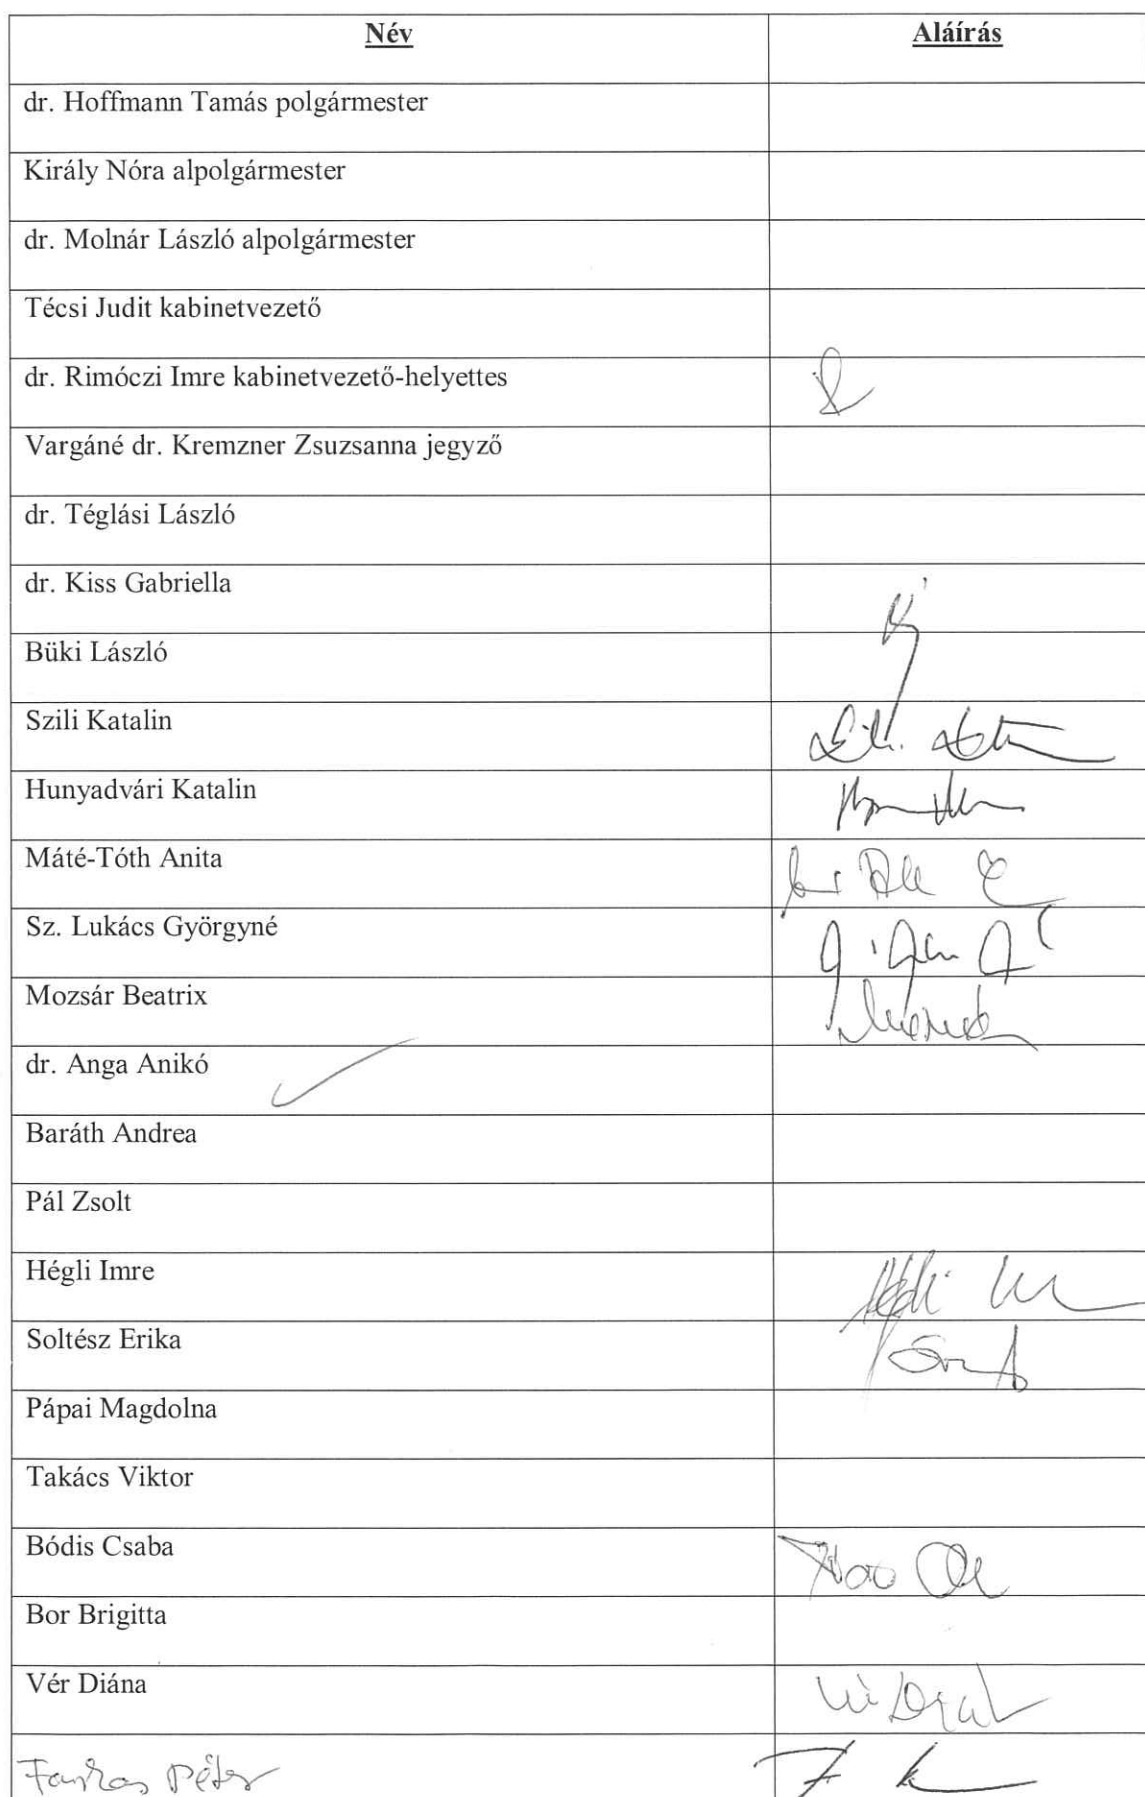 Név Aláírás
dr. Hoffmann Tamás polgármester
Király Nóra alpolgármester
dr. Molnár László alpolgármester
Técsi Judit kabinetvezető
dr. Rimóczi Imre kabinetvezető-helyettes
Vargáné dr. Kremzner Zsuzsanna jegyző
dr. Téglási László
dr. Kiss Gabriella
Büki László
Szili Katalin
Hunyadvári Katalin
Máté-Tóth Anita
Sz. Lukács Györgyné
Mozsár Beatrix
dr. Anga Anikó
Baráth Andrea
Pál Zsolt
Hégli Imre
Soltész Erika
Pápai Magdolna
Takács Viktor
Bódis Csaba
Bor Brigitta
Vér Diána
Farkas Péter